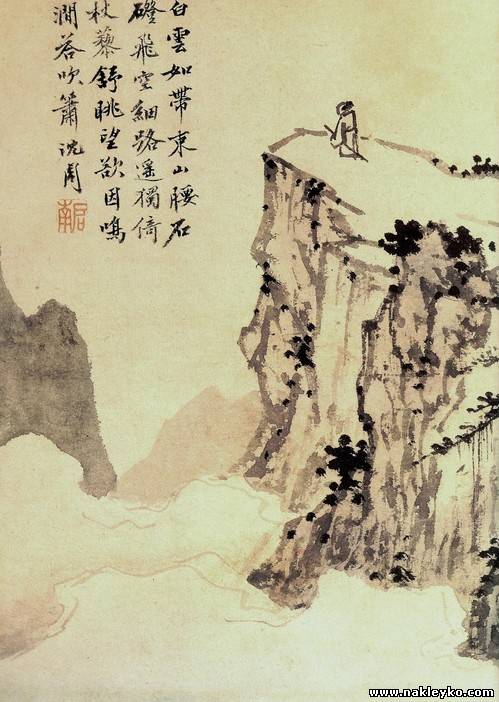 白雲如帶束山腰石
磴飛空細路遙獨倚
杖藜舒眺望欲因鳴
澗荅吹簫沈周
啟南
www.nakleyko.com